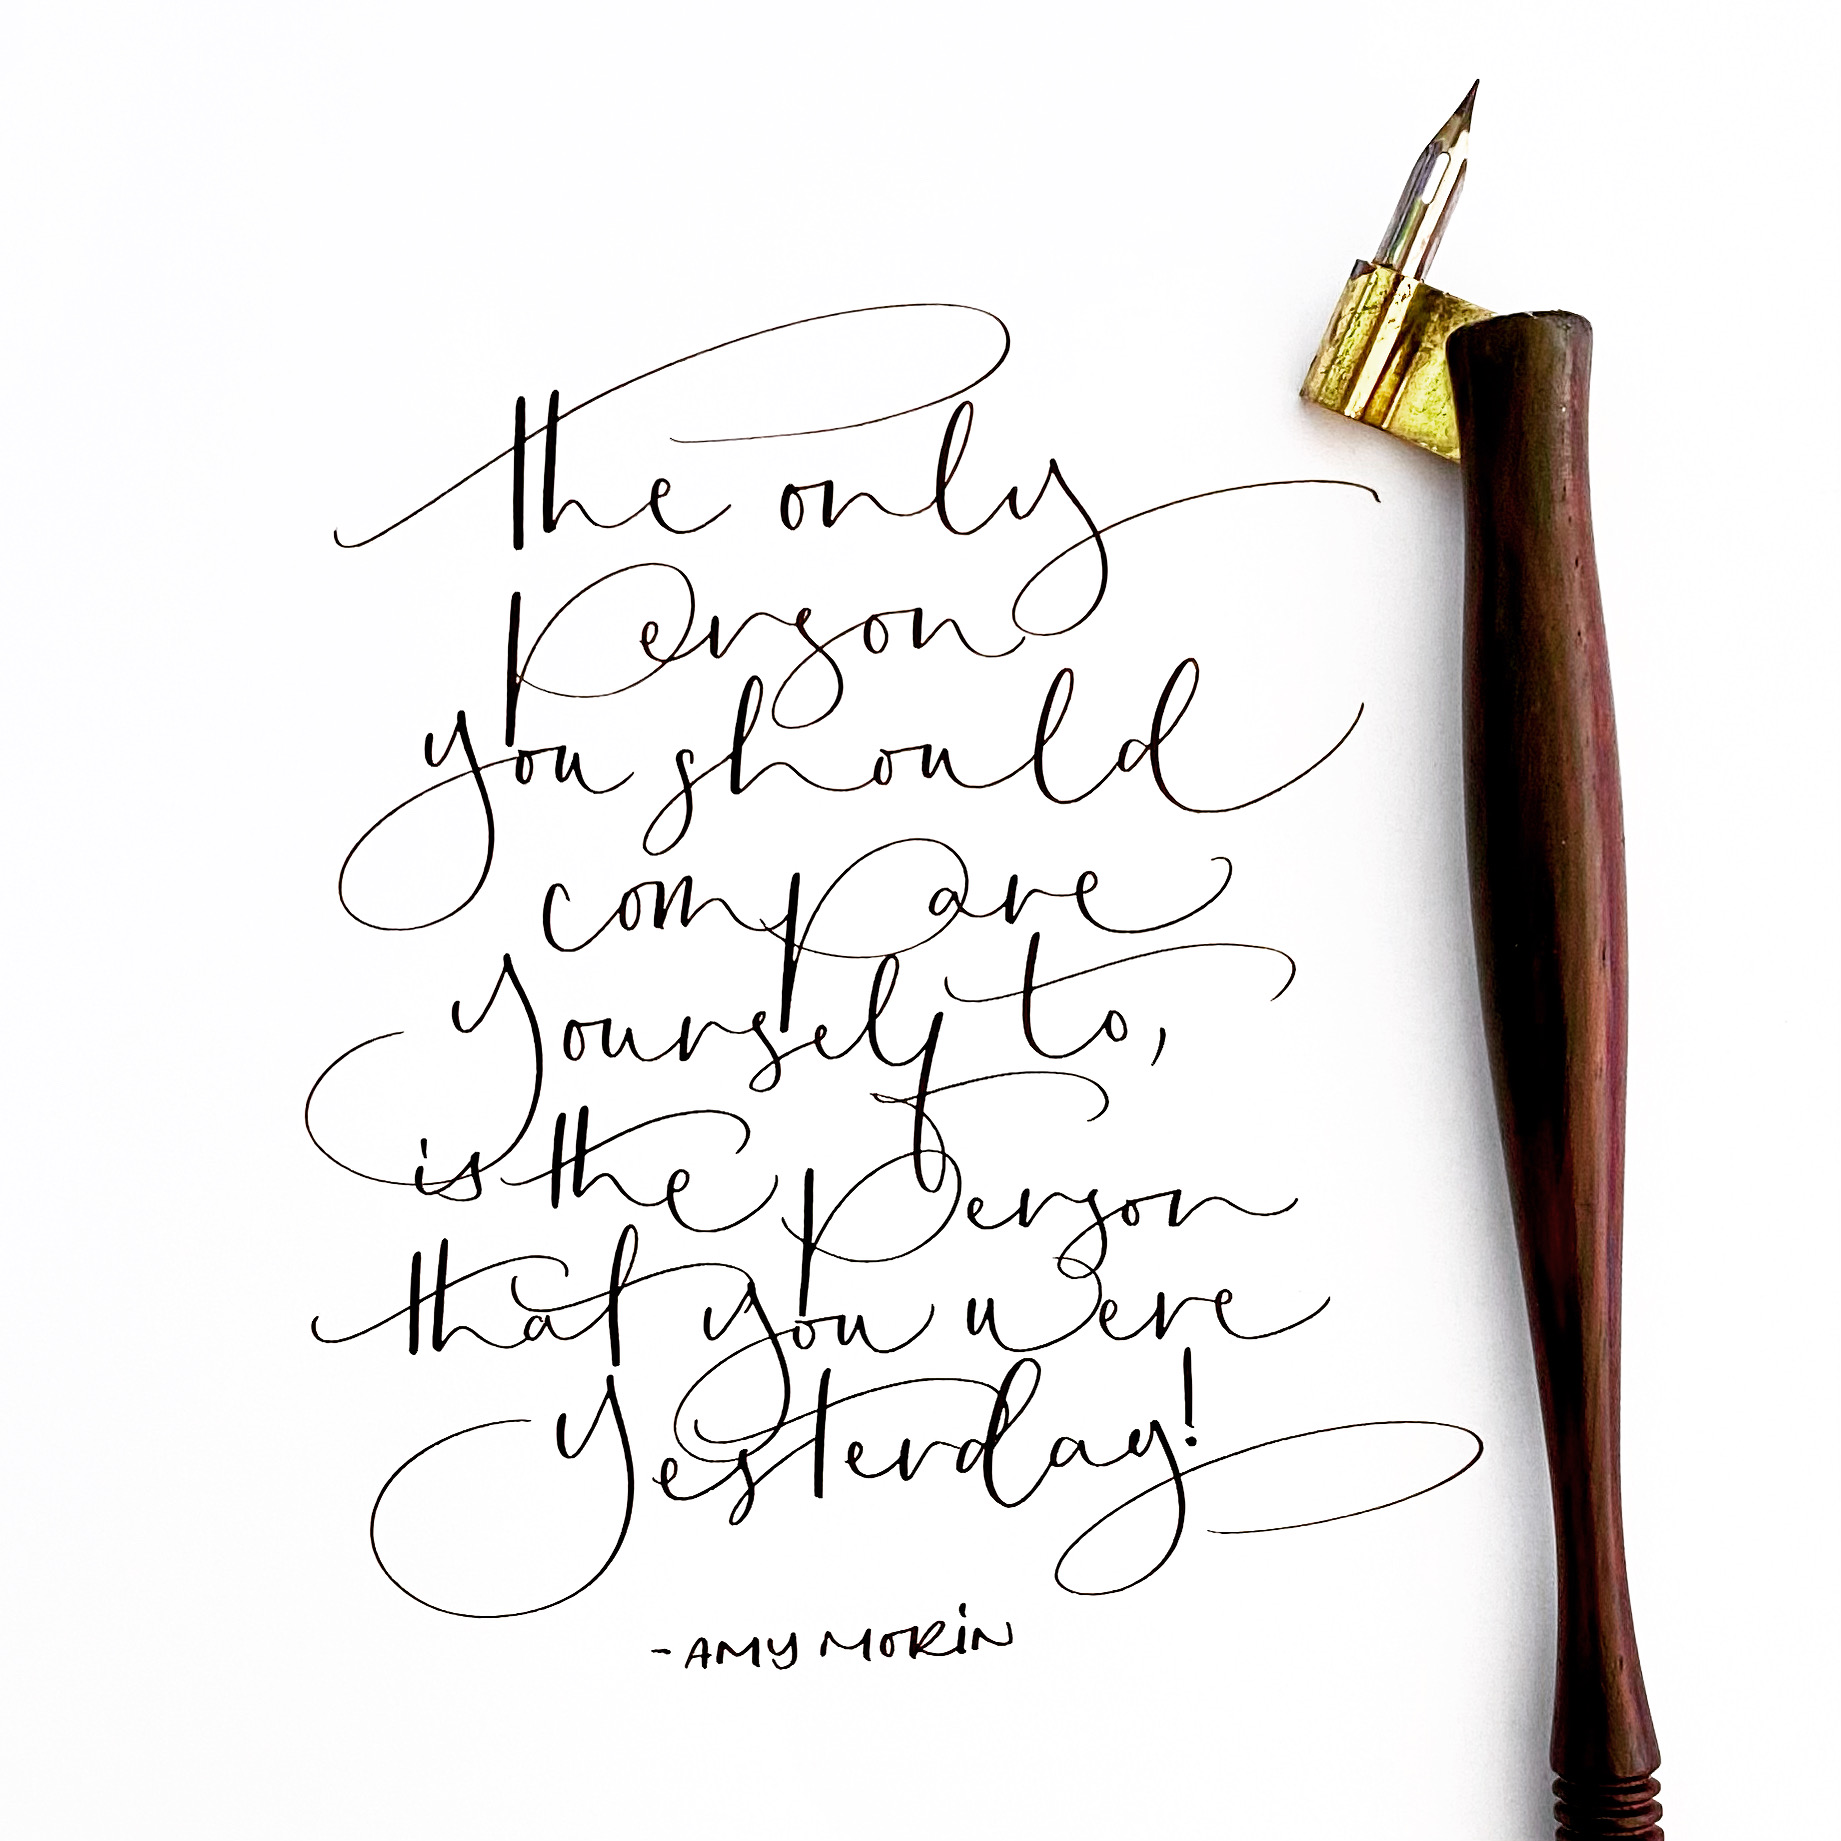 the only
person
you should
compare
yourself to,
is the person
that you were
yesterday!
- AMY MORiN